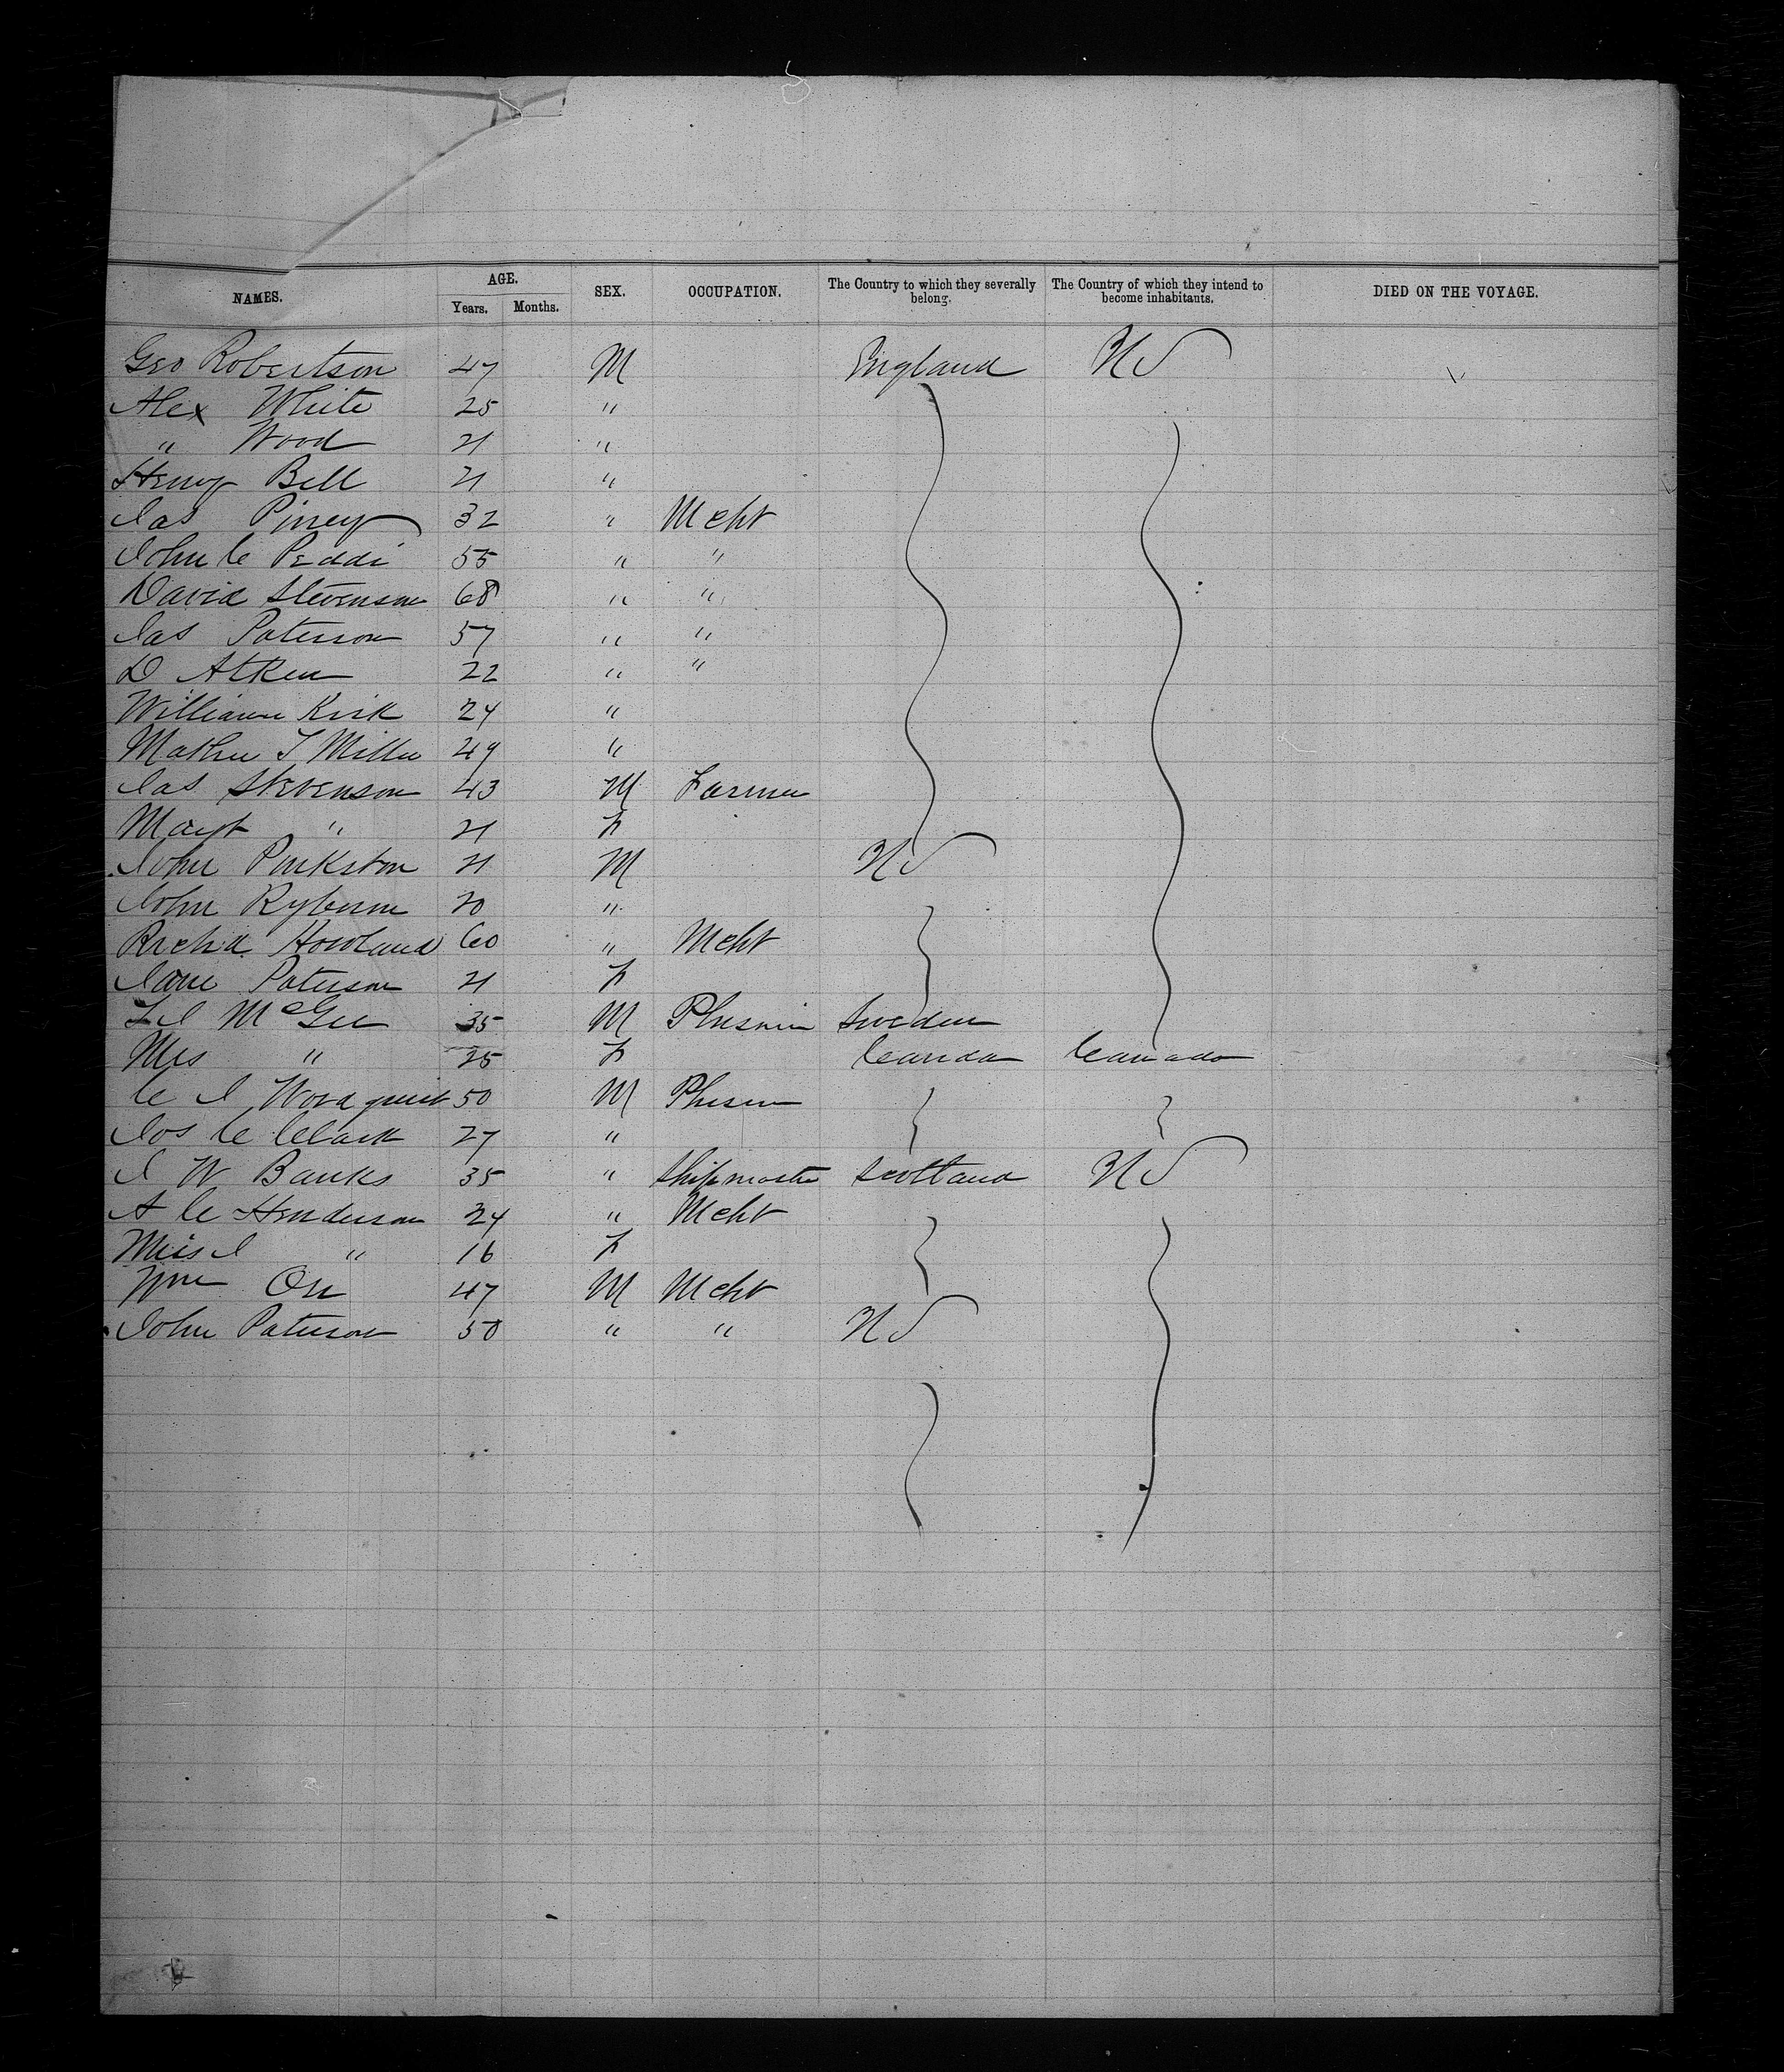 NAMES. AGE. Years. Months. SEX. OCCUPATION. The Country to which they severally belong. The Country of which they intend to become inhabitants. DIED ON THE VOYAGE.
Geo Robertson 47 M England US
Alex White 25 "
" Wood 21 "
Henry Bell 21 "
Jas Pirrey 32 " Mcht
John C Peddi 55 " "
David Stevenson 68 " "
Jas Paterson 57 " "
D Atken 22 " "
William Kirk 24 "
Mathew T Miller 49 "
Jas Stevenson 43 M Farmer
Margt " 21 F
John Pinkston 21 M US
John 20 "
Richd Howland 60 " Mcht
Jane Paterson 21 F
McGee 35 M Sweden
Mrs " 25 F Canada Canada
C J 50 M
Jos C Clark 27 "
J W Banks 35 " Shipmaster Scotland US
A C Henderson 24 " Mcht
Miss J " 16 F
Wm Orr 47 M Mcht
John Paterson 50 " " US